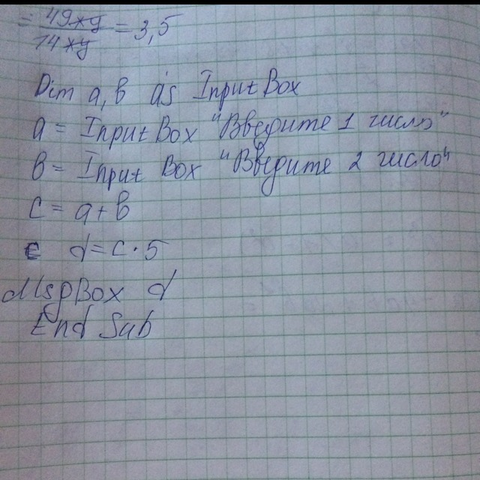 = 49xy / 14xy = 3,5
Dim a, b as Input Box
a = Input Box "Введите 1 число"
b = Input Box "Введите 2 число"
c = a + b
c d = c · 5
MsgBox d
End Sub